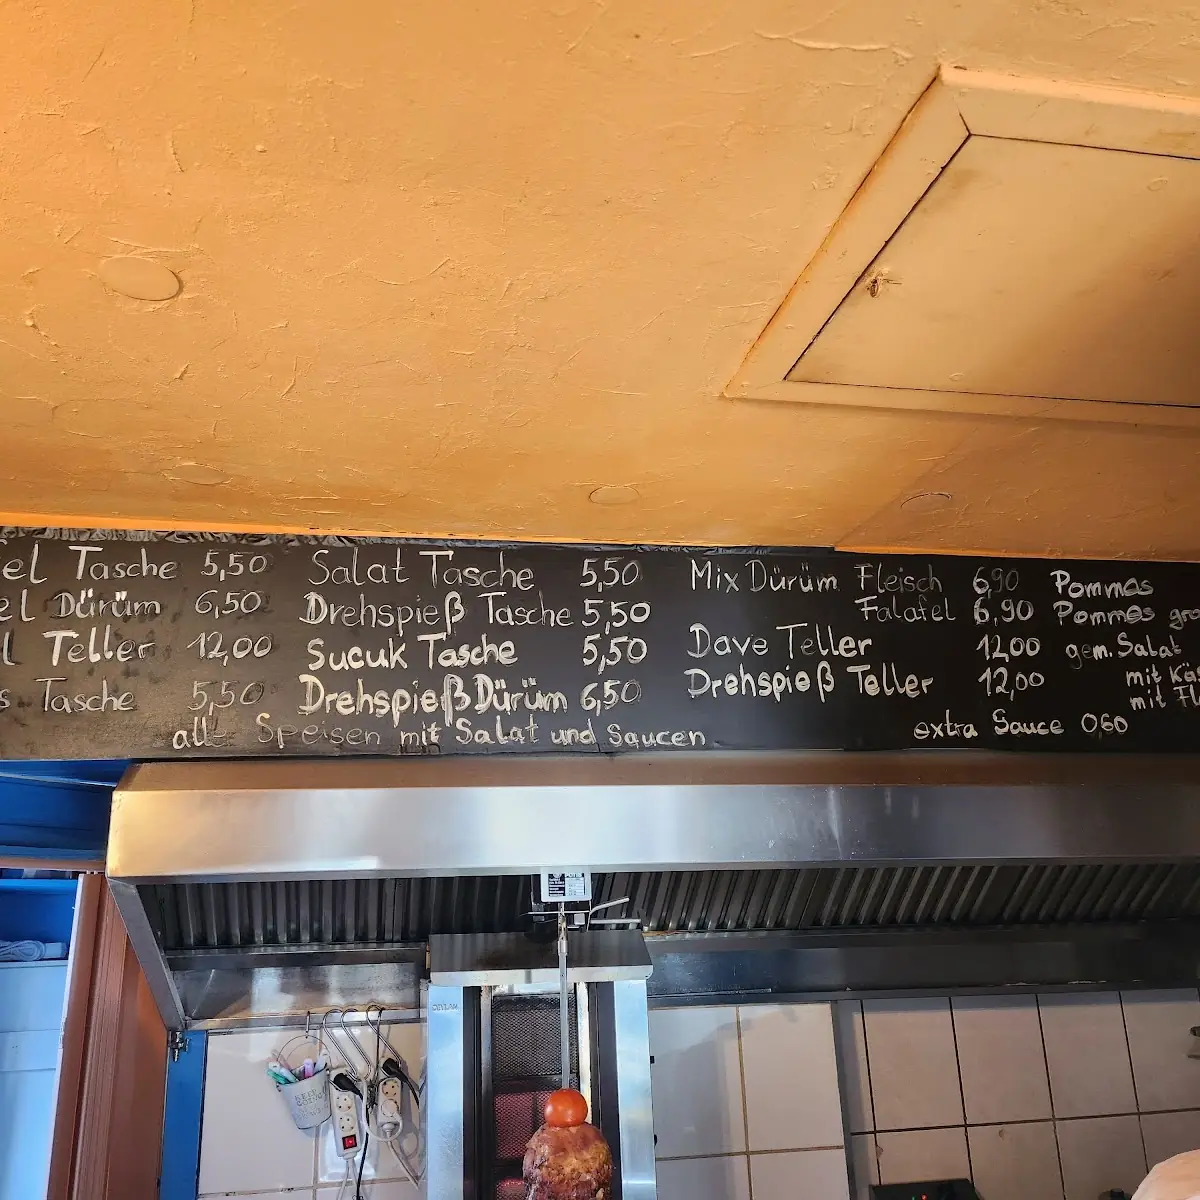 el Tasche 5,50
el Dürüm 6,50
l Teller 12,00
s Tasche 5,50
Salat Tasche 5,50
Drehspieß Tasche 5,50
Sucuk Tasche 5,50
Drehspieß Dürüm 6,50
alle Speisen mit Salat und Saucen
Mix Dürüm Fleisch 6,90
Falafel 6,90
Dave Teller 12,00
Drehspieß Teller 12,00
extra Sauce 0,60
Pommes
Pommes gro
gem. Salat
mit Käs
mit